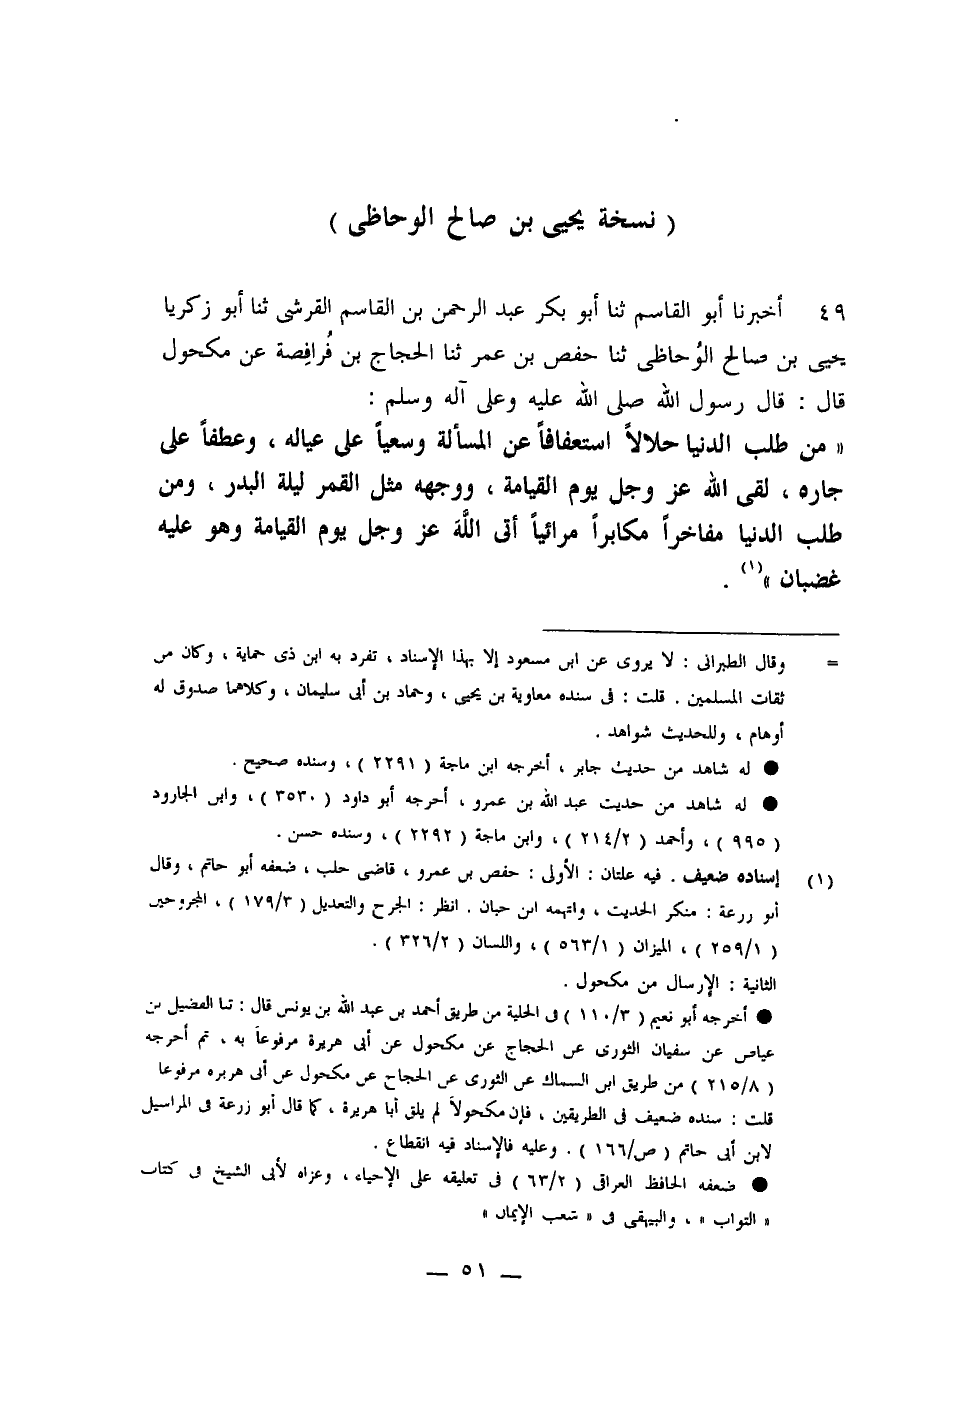 ( نسخة يحيى بن صالح الوحاظى )
٤٩ أخبرنا أبو القاسم ثنا أبو بكر عبد الرحمن بن القاسم القرشى ثنا أبو زكريا
يحيى بن صالح الوُحاظى ثنا حفص بن عمر ثنا الحجاج بن فُرافِصة عن مكحول
قال : قال رسول الله صلى الله عليه وعلى آله وسلم :
« من طلب الدنيا حلالاً استعفافاً عن المسألة وسعياً على عياله ، وعطفاً على
جاره ، لقى الله عز وجل يوم القيامة ، ووجهه مثل القمر ليلة البدر ، ومن
طلب الدنيا مفاخراً مكابراً مرائياً أتى اللَّهَ عز وجل يوم القيامة وهو عليه
غضبان »(١) .
= وقال الطبرانى : لا يروى عن ابن مسعود إلا بهذا الإسناد ، تفرد به ابن ذى حماية ، وكان من
ثقات المسلمين . قلت : فى سنده معاوية بن يحيى ، وحماد بن أبى سليمان ، وكلاهما صدوق له
أوهام ، وللحديث شواهد .
● له شاهد من حديث جابر ، أخرجه ابن ماجة ( ٢٢٩١ ) ، وسنده صحيح .
● له شاهد من حديث عبد الله بن عمرو ، أخرجه أبو داود ( ٣٥٣٠ ) ، وابن الجارود
( ٩٩٥ ) ، وأحمد ( ٢١٤/٢ ) ، وابن ماجة ( ٢٢٩٢ ) ، وسنده حسن .
(١) إسناده ضعيف . فيه علتان : الأولى : حفص بن عمرو ، قاضى حلب ، ضعفه أبو حاتم ، وقال
أبو زرعة : منكر الحديث ، واتهمه ابن حبان . انظر : الجرح والتعديل ( ١٧٩/٣ ) ، المجروحين
( ٢٥٩/١ ) ، الميزان ( ٥٦٣/١ ) ، واللسان ( ٣٢٦/٢ ) .
الثانية : الإرسال من مكحول .
● أخرجه أبو نعيم ( ١١٠/٣ ) فى الحلية من طريق أحمد بن عبد الله بن يونس قال : ثنا الفضيل بن
عياض عن سفيان الثورى عن الحجاج عن مكحول عن أبى هريرة مرفوعاً به ، ثم أخرجه
( ٢١٥/٨ ) من طريق ابن السماك عن الثورى عن الحجاج عن مكحول عن أبى هريره مرفوعا
قلت : سنده ضعيف فى الطريقين ، فإن مكحولاً لم يلق أبا هريرة ، كما قال أبو زرعة فى المراسيل
لابن أبى حاتم ( ص/١٦٦ ) . وعليه فالإسناد فيه انقطاع .
● ضعفه الحافظ العراقى ( ٦٣/٢ ) فى تعليقه على الإحياء ، وعزاه لأبى الشيخ فى كتاب
« الثواب » ، والبيهقى فى « شعب الإيمان »
— ٥١ —